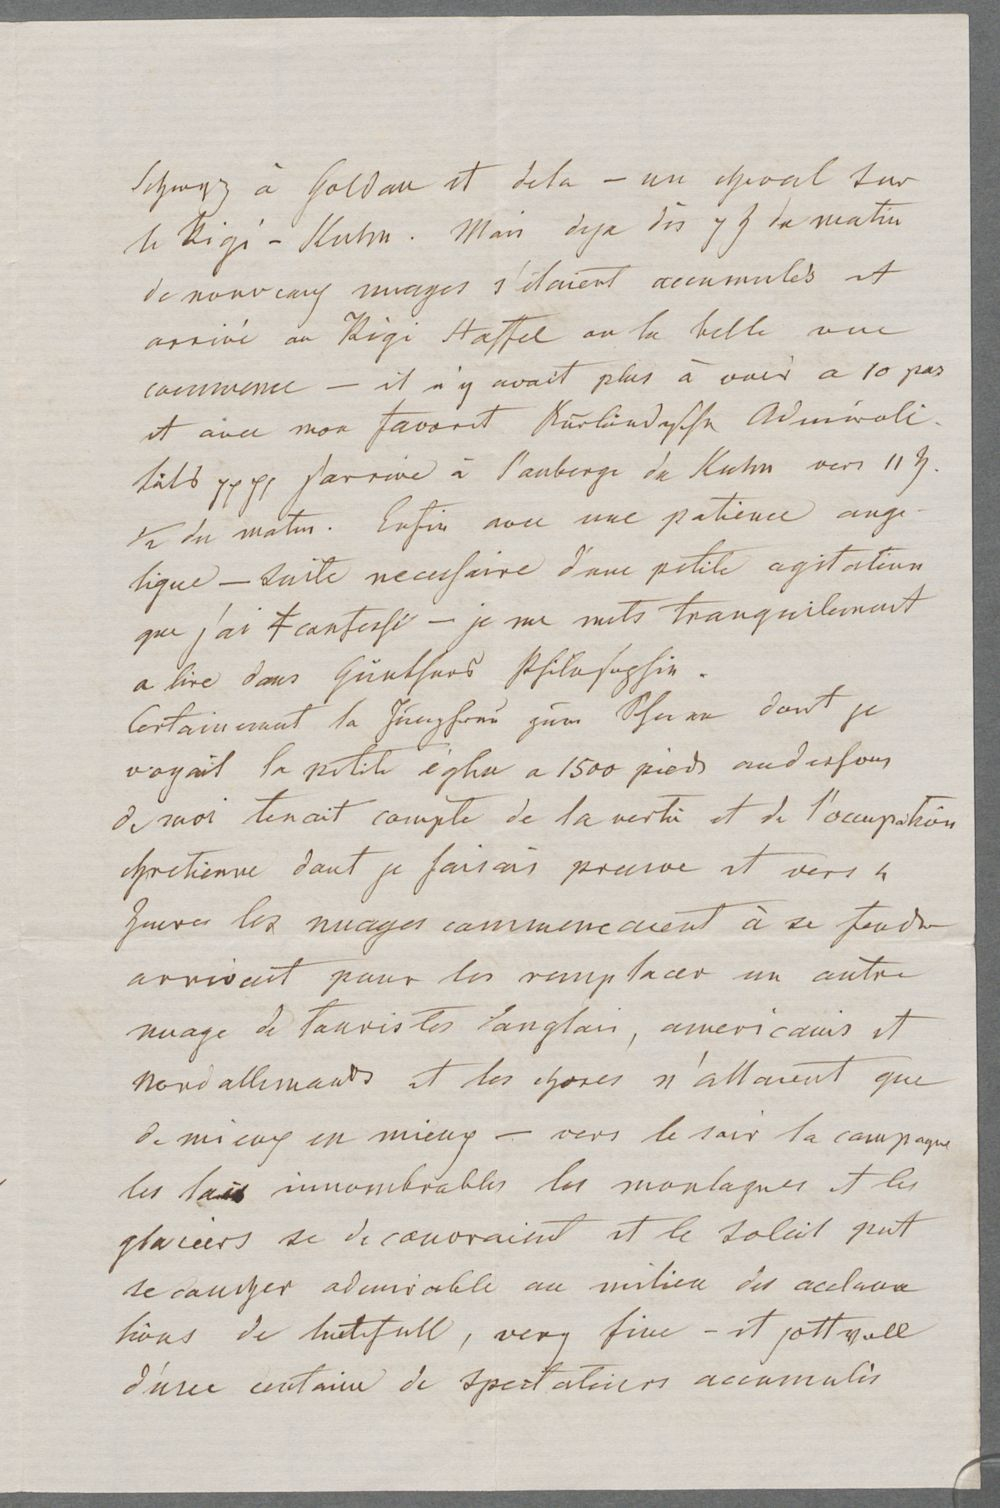 Schwyz à Goldau et dela – un cheval sur
le Rigi – Kulm. Mais deja dès 7 h du matin
de nouveaux nuages s'étaient accumulés et
arrivé au Rigi Staffel ou la belle vue
commence – il n'y avait plus à voir a 10 pas
et avec mon favorit Kurländische Admirali-
täts j'arrive à l'auberge du Kulm vers 11 h.
1/2 du matin. Enfin avec une patience ange-
lique – suite necessaire d'une petite agitation
que j'ai confessé – je me mets tranquilement
a lire dans Günthers Philosophie.
Certainement la Jungfrau zum Schnee dont je
voyait la petite église a 1500 pieds audessous
de moi tenait compte de la vertu et de l'occupation
chretienne dont je faisais preuve et vers 4
heures les nuages commencaient à se fendre
arrivait pour les remplacer un autre
nuage de touristes anglais, americains et
Nordallemands et les choses n'allaient que
de mieux en mieux – vers le soir la campagne
les lacs innombrables les montagnes et les
glaciers se decouvraient et le soleil put
se coucher admirable au milieu des acclama
tions de , very fine – et gottvoll
d'une centaine de spectateurs accumulés